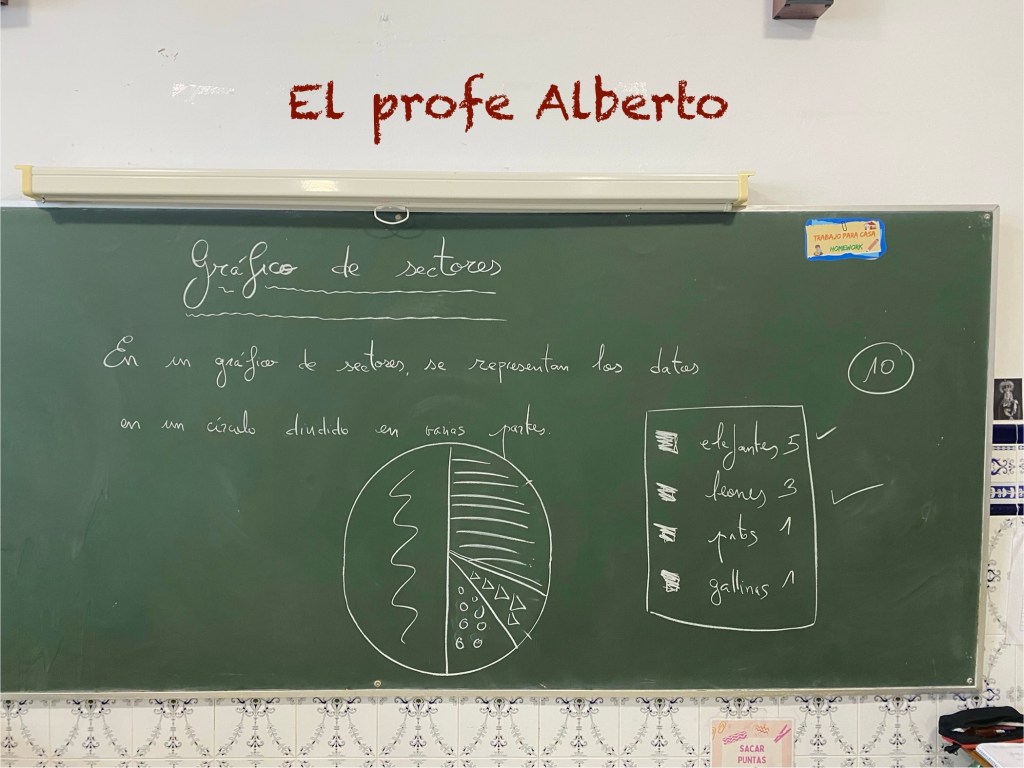 El profe Alberto
TRABAJO PARA CASA
HOMEWORK
Gráfico de sectores
En un gráfico de sectores, se representan los datos
en un círculo dividido en varias partes.
10
elefantes 5
leones 3
patos 1
gallinas 1
SACAR
PUNTAS